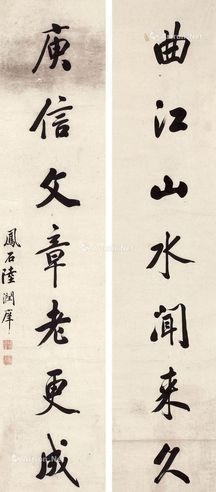 曲江山水聞来久
庾信文章老更成
鳳石陸潤庠